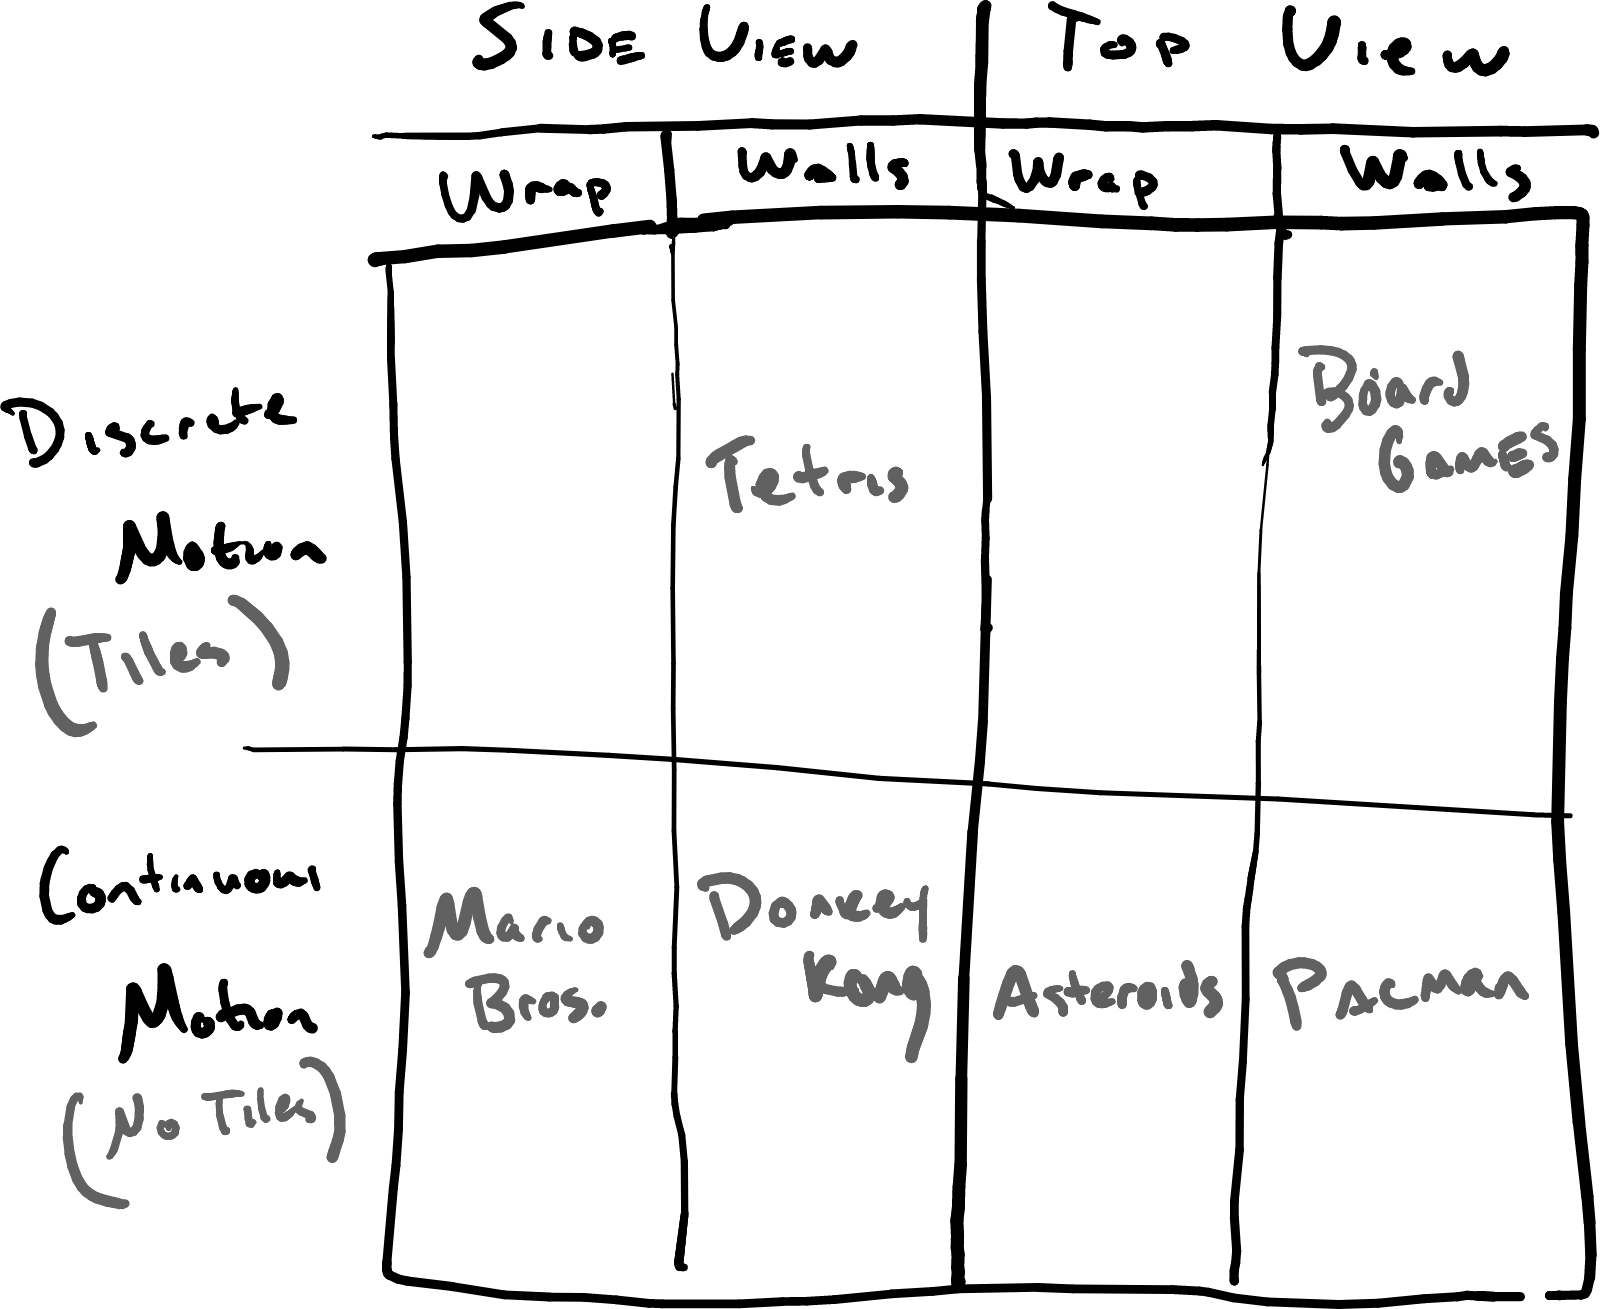 SIDE VIEW TOP VIEW
Wrap Walls Wrap Walls
Discrete
Motion
(Tiles)
Tetris
Board
GAMES
Continuous
Motion
(No Tiles)
Mario
Bros.
Donkey
Kong
Asteroids
PACMAN